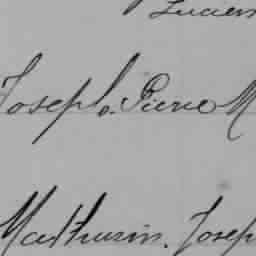 Lucien
Joseph. Pierre M
Mathurin. Joseph